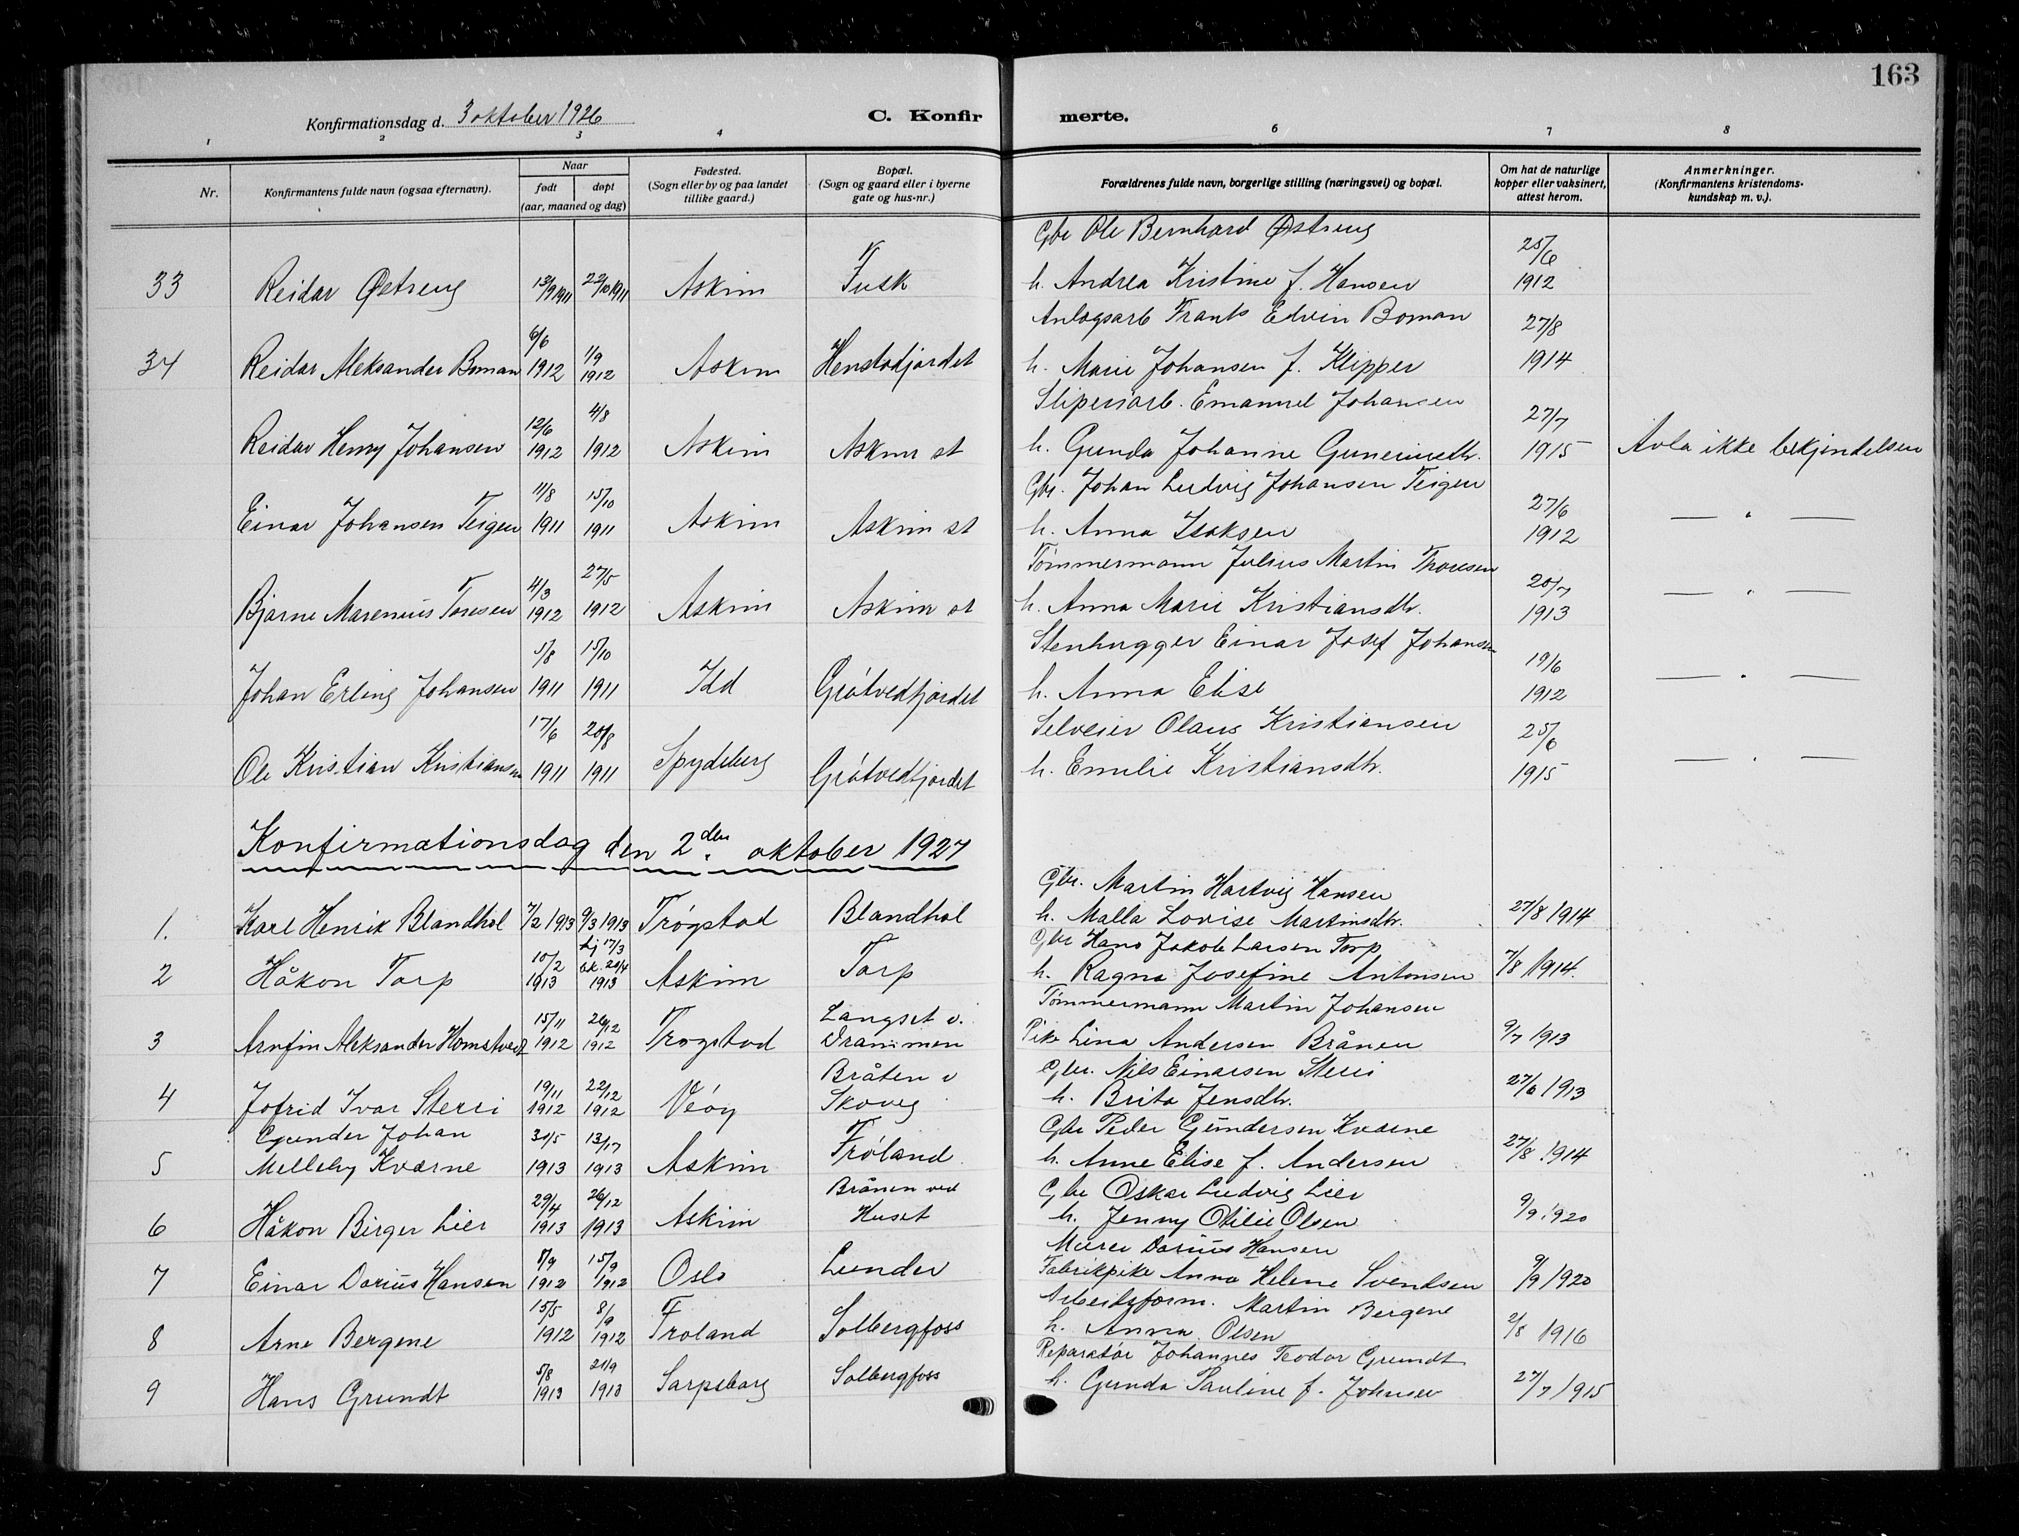 163
Konfirmationsdag d. 3 oktober 1926
C. Konfirmerte.
1 2 3 4 5 6 7 8
Nr. | Konfirmantens fulde navn (ogsaa efternavn). | Naar født døpt (aar, maaned og dag) | Fødested. (Sogn eller by og paa landet tillike gaard.) | Bopæl. (Sogn og gaard eller i byerne gate og hus-nr.) | Forældrenes fulde navn, borgerlige stilling (næringsvei) og bopæl. | Om hat de naturlige kopper eller vaksinert, attest herom. | Anmerkninger. (Konfirmantens kristendomskundskap m. v.).
33 Reidar Østreng 13/9 1911 22/10 1911 Askim Fusk Gbr Ole Bernhard Østreng h. Andrea Kristine f. Hansen 25/6 1912
34 Reidar Aleksander Boman 6/6 1912 1/9 1912 Askim Henstadjordet Anlagsarb Frants Edvin Boman h. Marie Johansen f. Klipper 27/8 1914
Reidar Henry Johansen 12/6 1912 4/8 1912 Askim Askim st Sliperiarb. Emanuel Johansen h. Gunda Johanne Guneriusdtr. 27/7 1915 Avla ikke bekjendelsen
Einar Johansen Teigen 11/8 1911 15/10 1911 Askim Askim st Gbr. Johan Ludvig Johansen Teigen h. Anna Isaksen 27/6 1912 — " —
Bjarne Marenius Toresen 4/3 1912 27/5 1912 Askim Askim st Tømmermann Julius Martin Thoresen h. Anna Marie Kristiansdtr. 20/7 1913 — " —
Johan Erling Johansen 5/8 1911 15/10 1911 Idd Grøtvedtjordet Stenhugger Einar Josef Johansen h. Anna Elise 19/6 1912 — " —
Ole Kristian Kristiansen 17/6 1911 20/8 1911 Spydeberg Grøtvedtjordet Selveier Olaus Kristiansen h. Emilie Kristiansdtr. 25/6 1915 — " —
Konfirmationsdag den 2den oktober 1927
1. Karl Henrik Blandhol 7/2 1913 9/3 1913 Trøgstad Blandhol Gbr. Martin Hartvig Hansen h. Malla Lovise Martinsdtr. 27/8 1914
2 Håkon Torp 10/2 1913 hj 17/3 bk. 20/4 1913 Askim Torp Gbr Hans Jakob Larsen Torp h. Ragna Josefine Antonsen 7/8 1914.
3 Arnfin Aleksander Homstvedt 15/11 1912 26/12 1912 Trøgstad Langset v. Drammen Tømmermann Martin Johansen Pike Lina Andersen Brånen 9/7 1913
4 Jofrid Ivar Sterri 19/11 1912 22/12 1912 Veøy Bråten v Skoveg Gbr. Nils Einarsen Sterri h. Brita Jensdtr. 27/6 1913
5 Gunder Johan Melleby Kværne 30/5 1913 13/7 1913 Askim Frøland Gbr Peder Gundersen Kværne h. Anne Elise f. Andersen 27/8 1914
6 Håkon Birger Lier 29/4 1913 26/12 1913 Askim Brånen ved Huset Gbr Oskar Ludvig Lier h. Jenny Otilie Olsen 9/9 1920
7 Einar Darius Hansen 8/9 1912 15/9 1912 Oslo Lunder Murer Darius Hansen Fabrikpike Anna Helene Svendsen 9/9 1920
8 Arne Bergene 15/5 1912 8/9 1912 Froland Solbergfoss Arbeidsform. Martin Bergene h. Anna Olsen 2/8 1916
9 Hans Grundt 5/8 1913 21/9 1913 Sarpsborg Solbergfoss Reparatør Johannes Teodor Grundt h. Gunda Pauline f. Johnsen 27/7 1915